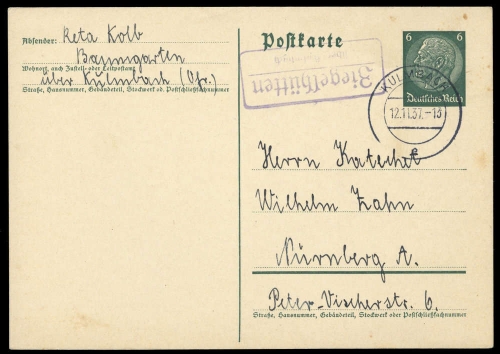 Absender: Reta Kolb
Baumgarten
Wohnort, auch Zustell- oder Leitpostamt
über Kulmbach (Ofr.)
Straße, Hausnummer, Gebäudeteil, Stockwerk od. Postschließfachnummer
Postkarte
6 6
Deutsches Reich
Ziegelhütten
KULMBACH
12.11.37.-13
Herrn Katechet
Wilhelm Zahn
Nürnberg A.
Peter-Vischerstr. 6.
Straße, Hausnummer, Gebäudeteil, Stockwerk oder Postschließfachnummer